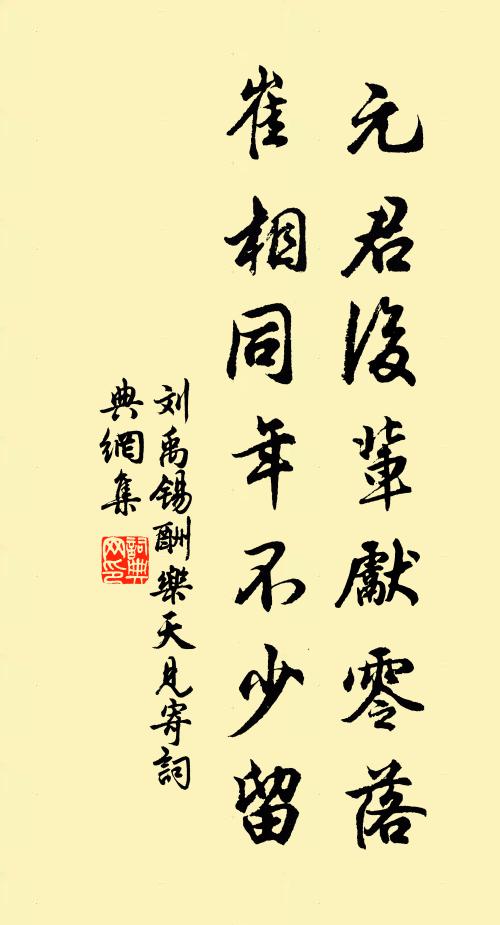 元君後輩獻零落
崔相同年不少留
刘禹锡酬樂天見寄詞
典網集
詞典
网印